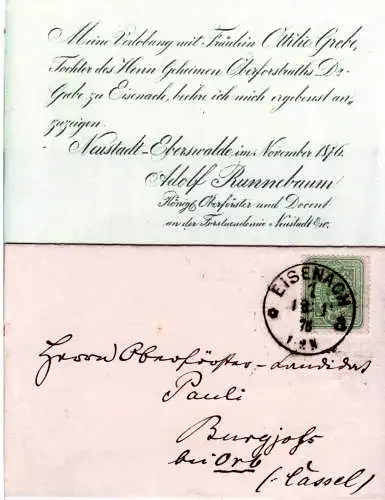 Meine Verlobung mit Fräulein Ottilie Grebe,
Tochter des Herrn Geheimen Oberforstraths Dr.
Grebe zu Eisenach, beehre ich mich ergebenst an,,
zuzeigen.
Neustadt-Eberswalde im November 1876.
Adolf Runnebaum
Königl. Oberförster und Docent
an der Forstacademie Neustadt E/w.
EISENACH
76
Herrn Oberförster-Candidat
Pauli
Burgjoss
bei Orb
(Cassel)